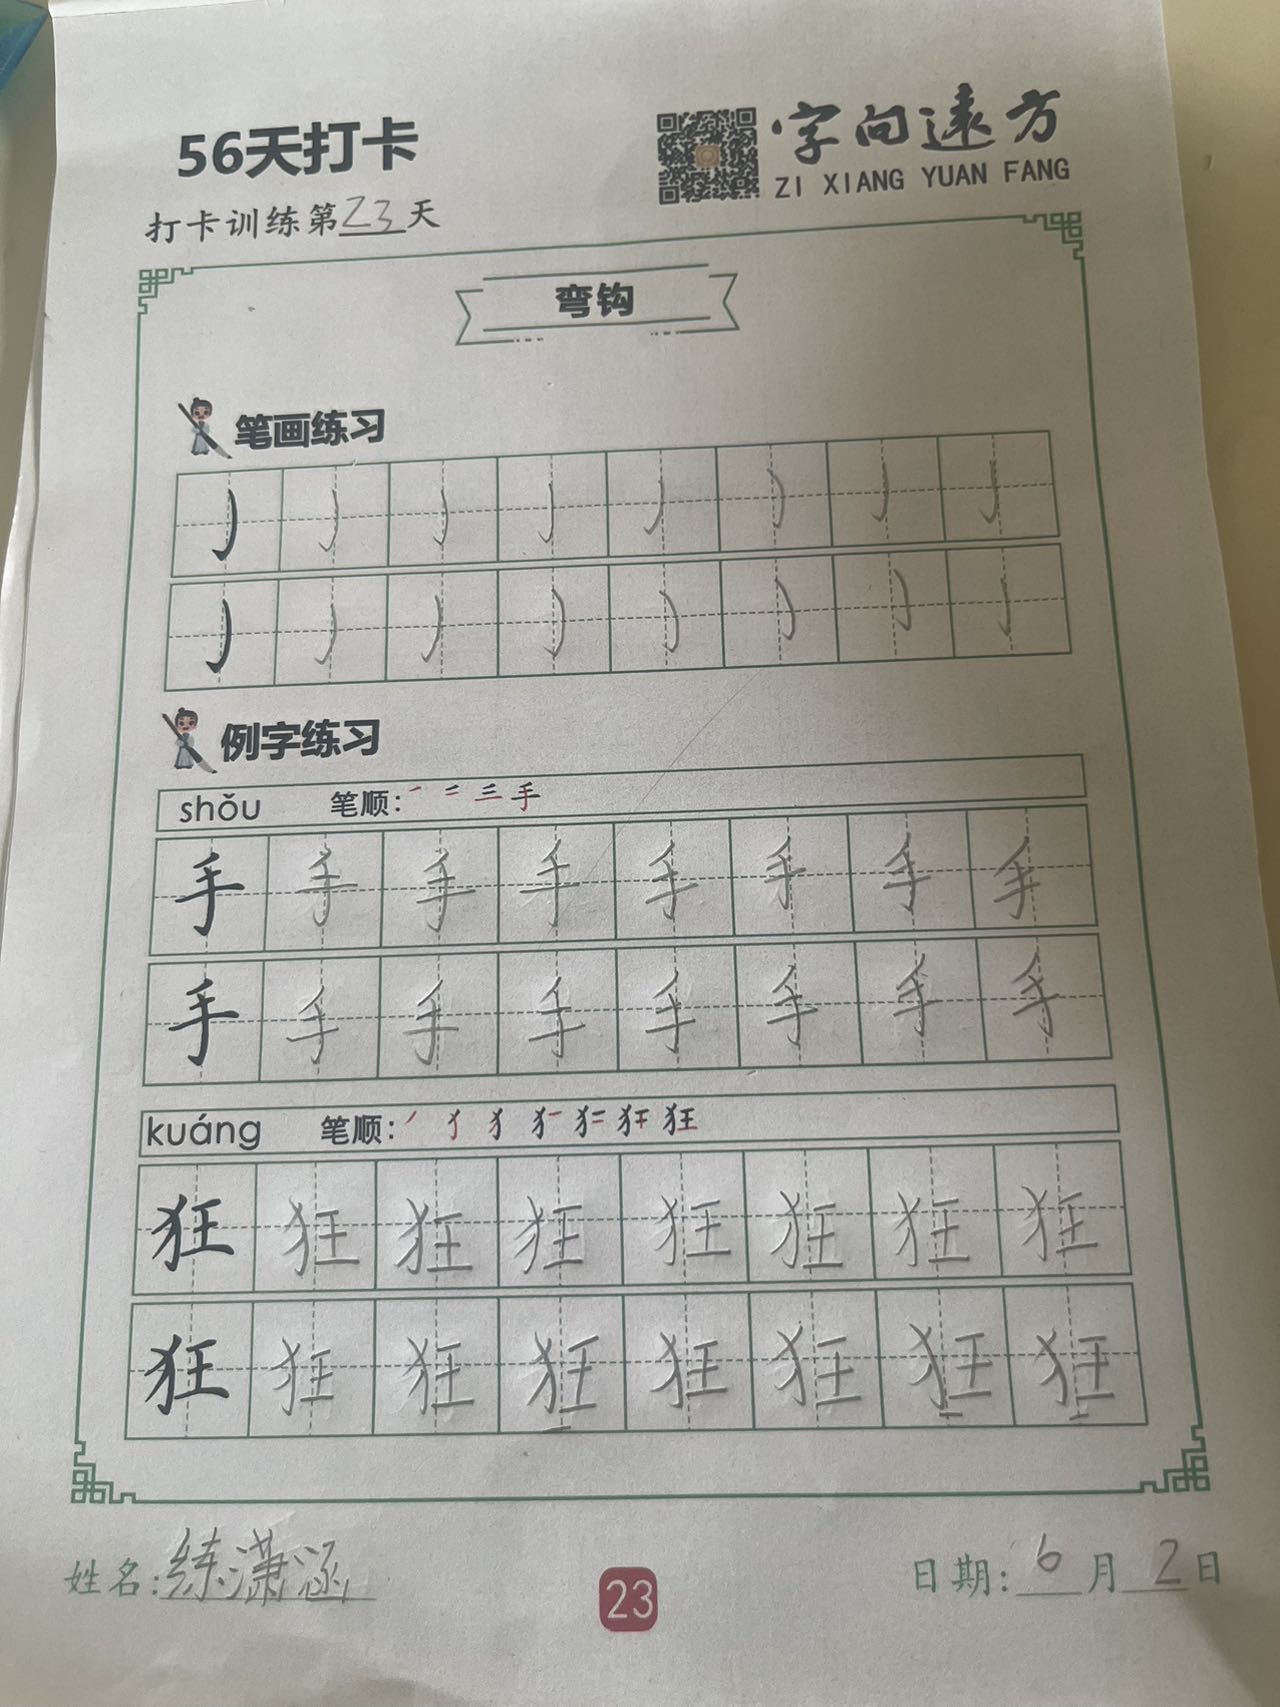 56天打卡
字向遠方
ZI XIANG YUAN FANG
打卡训练第23天
弯钩
笔画练习
㇁ ㇁ ㇁ ㇁ ㇁ ㇁ ㇁ ㇁
㇁ ㇁ ㇁ ㇁ ㇁ ㇁ ㇁ ㇁
例字练习
shǒu 笔顺: 一 二 三 手
手 手 手 手 手 手 手 手
手 手 手 手 手 手 手 手
kuáng 笔顺: 狂
狂 狂 狂 狂 狂 狂 狂 狂
狂 狂 狂 狂 狂 狂 狂 狂
姓名:练潇涵
23
日期:6月2日